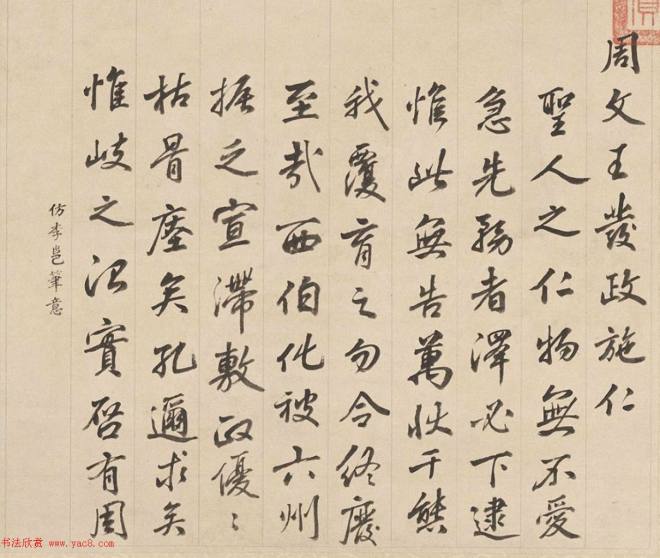 周文王發政施仁
聖人之仁物無不愛
急先務者澤必下逮
惟此無告萬狀千態
我覆育之勿令終廢
至哉西伯化被六州
振乏宣滯敷政優〻
枯骨瘞矣孔邇求矣
惟岐之治實启有周
仿李邕筆意
书法欣赏 www.yac8.com